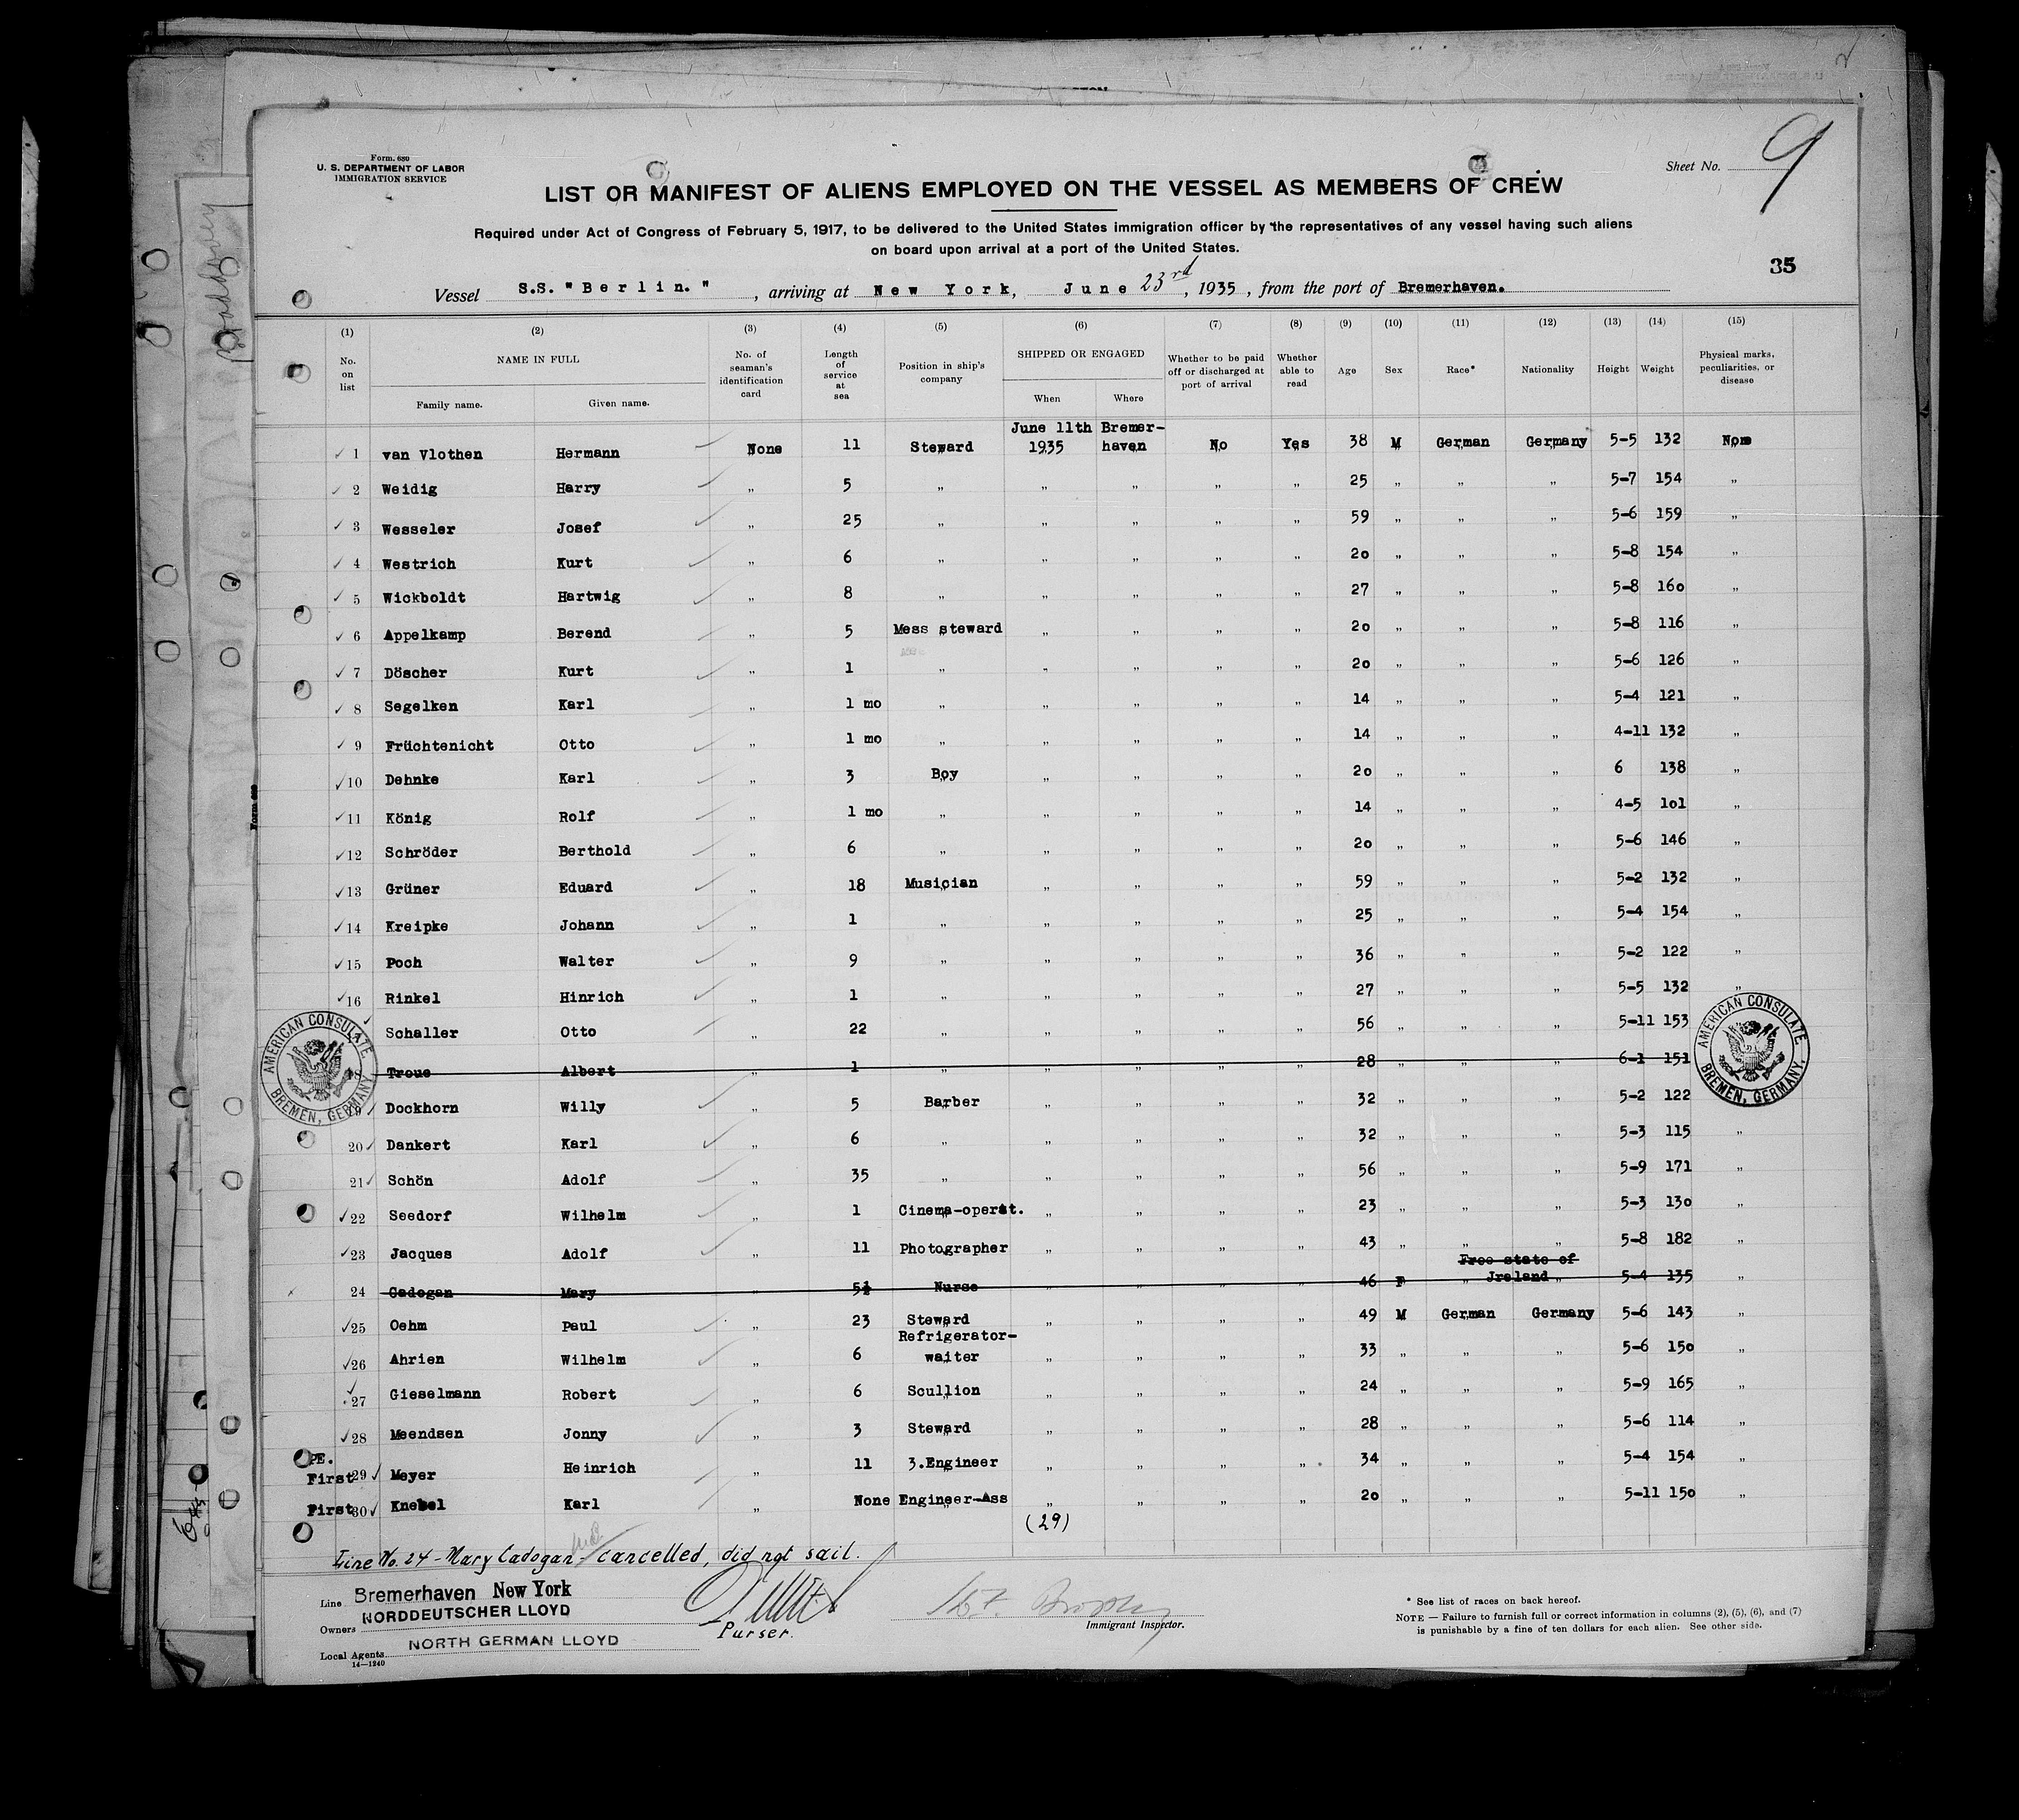 Form. 680
U. S. DEPARTMENT OF LABOR
IMMIGRATION SERVICE
Sheet No. 9
LIST OR MANIFEST OF ALIENS EMPLOYED ON THE VESSEL AS MEMBERS OF CREW
Required under Act of Congress of February 5, 1917, to be delivered to the United States immigration officer by the representatives of any vessel having such aliens
on board upon arrival at a port of the United States.
35
Vessel S.S. "Berlin." , arriving at New York, June 23rd, 1935, from the port of Bremerhaven.
(1) (2) (3) (4) (5) (6) (7) (8) (9) (10) (11) (12) (13) (14) (15)
No. on list NAME IN FULL Family name. Given name. No. of seaman's identification card Length of service at sea Position in ship's company SHIPPED OR ENGAGED When Where Whether to be paid off or discharged at port of arrival Whether able to read Age Sex Race* Nationality Height Weight Physical marks, peculiarities, or disease
1 van Vlothen Hermann None 11 Steward June 11th 1935 Bremerhaven No Yes 38 M German Germany 5-5 132 None
2 Weidig Harry „ 5 „ „ „ „ „ 25 „ „ „ 5-7 154 „
3 Wesseler Josef „ 25 „ „ „ „ „ 59 „ „ „ 5-6 159 „
4 Westrich Kurt „ 6 „ „ „ „ „ 20 „ „ „ 5-8 154 „
5 Wickboldt Hartwig „ 8 „ „ „ „ „ 27 „ „ „ 5-8 160 „
6 Appelkamp Berend „ 5 Mess steward „ „ „ „ 20 „ „ „ 5-8 116 „
7 Döscher Kurt „ 1 „ „ „ „ „ 20 „ „ „ 5-6 126 „
8 Segelken Karl „ 1 mo „ „ „ „ „ 14 „ „ „ 5-4 121 „
9 Früchtenicht Otto „ 1 mo „ „ „ „ „ 14 „ „ „ 4-11 132 „
10 Dehnke Karl „ 3 Boy „ „ „ „ 20 „ „ „ 6 138 „
11 König Rolf „ 1 mo „ „ „ „ „ 14 „ „ „ 4-5 101 „
12 Schröder Berthold „ 6 „ „ „ „ „ 20 „ „ „ 5-6 146 „
13 Grüner Eduard „ 18 Musician „ „ „ „ 59 „ „ „ 5-2 132 „
14 Kreipke Johann „ 1 „ „ „ „ „ 25 „ „ „ 5-4 154 „
15 Poch Walter „ 9 „ „ „ „ „ 36 „ „ „ 5-2 122 „
16 Rinkel Hinrich „ 1 „ „ „ „ „ 27 „ „ „ 5-5 132 „
Schaller Otto „ 22 „ „ „ „ „ 56 „ „ „ 5-11 153
18 Troue Albert „ 1 „ „ „ „ „ 28 „ „ „ 6-1 151
19 Dockhorn Willy „ 5 Barber „ „ „ „ 32 „ „ „ 5-2 122
20 Dankert Karl „ 6 „ „ „ „ „ 32 „ „ „ 5-3 115 „
21 Schön Adolf „ 35 „ „ „ „ „ 56 „ „ „ 5-9 171 „
22 Seedorf Wilhelm „ 1 Cinema-operat. „ „ „ „ 23 „ „ „ 5-3 130 „
23 Jacques Adolf „ 11 Photographer „ „ „ „ 43 „ „ „ 5-8 182 „
24 Cadogan Mary „ 5½ Nurse „ „ „ „ 46 F „ Free state of Jreland „ 5-4 135 „
25 Oehm Paul „ 23 Steward „ „ „ „ 49 M German Germany 5-6 143 „
26 Ahrien Wilhelm „ 6 Refrigerator-waiter „ „ „ „ 33 „ „ „ 5-6 150 „
27 Gieselmann Robert „ 6 Scullion „ „ „ „ 24 „ „ „ 5-9 165 „
28 Meendsen Jonny „ 3 Steward „ „ „ „ 28 „ „ „ 5-6 114 „
PE.
First 29 Meyer Heinrich „ 11 3.Engineer „ „ „ „ 34 „ „ „ 5-4 154 „
First 30 Knebel Karl „ None Engineer-Ass „ „ „ „ 20 „ „ „ 5-11 150 „
(29)
AMERICAN CONSULATE BREMEN, GERMANY.
AMERICAN CONSULATE BREMEN, GERMANY.
Line No. 24 - Mary Cadogan - cancelled, did not sail.
Line Bremerhaven New York
Owners NORDDEUTSCHER LLOYD
Local Agents NORTH GERMAN LLOYD
14—1240
Purser.
Immigrant Inspector.
* See list of races on back hereof.
NOTE — Failure to furnish full or correct information in columns (2), (5), (6), and (7)
is punishable by a fine of ten dollars for each alien. See other side.